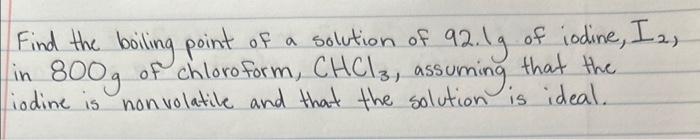 Find the boiling point of a solution of 92.1g of iodine, I₂,
in 800g of chloroform, CHCl₃, assuming that the
iodine is nonvolatile and that the solution is ideal.